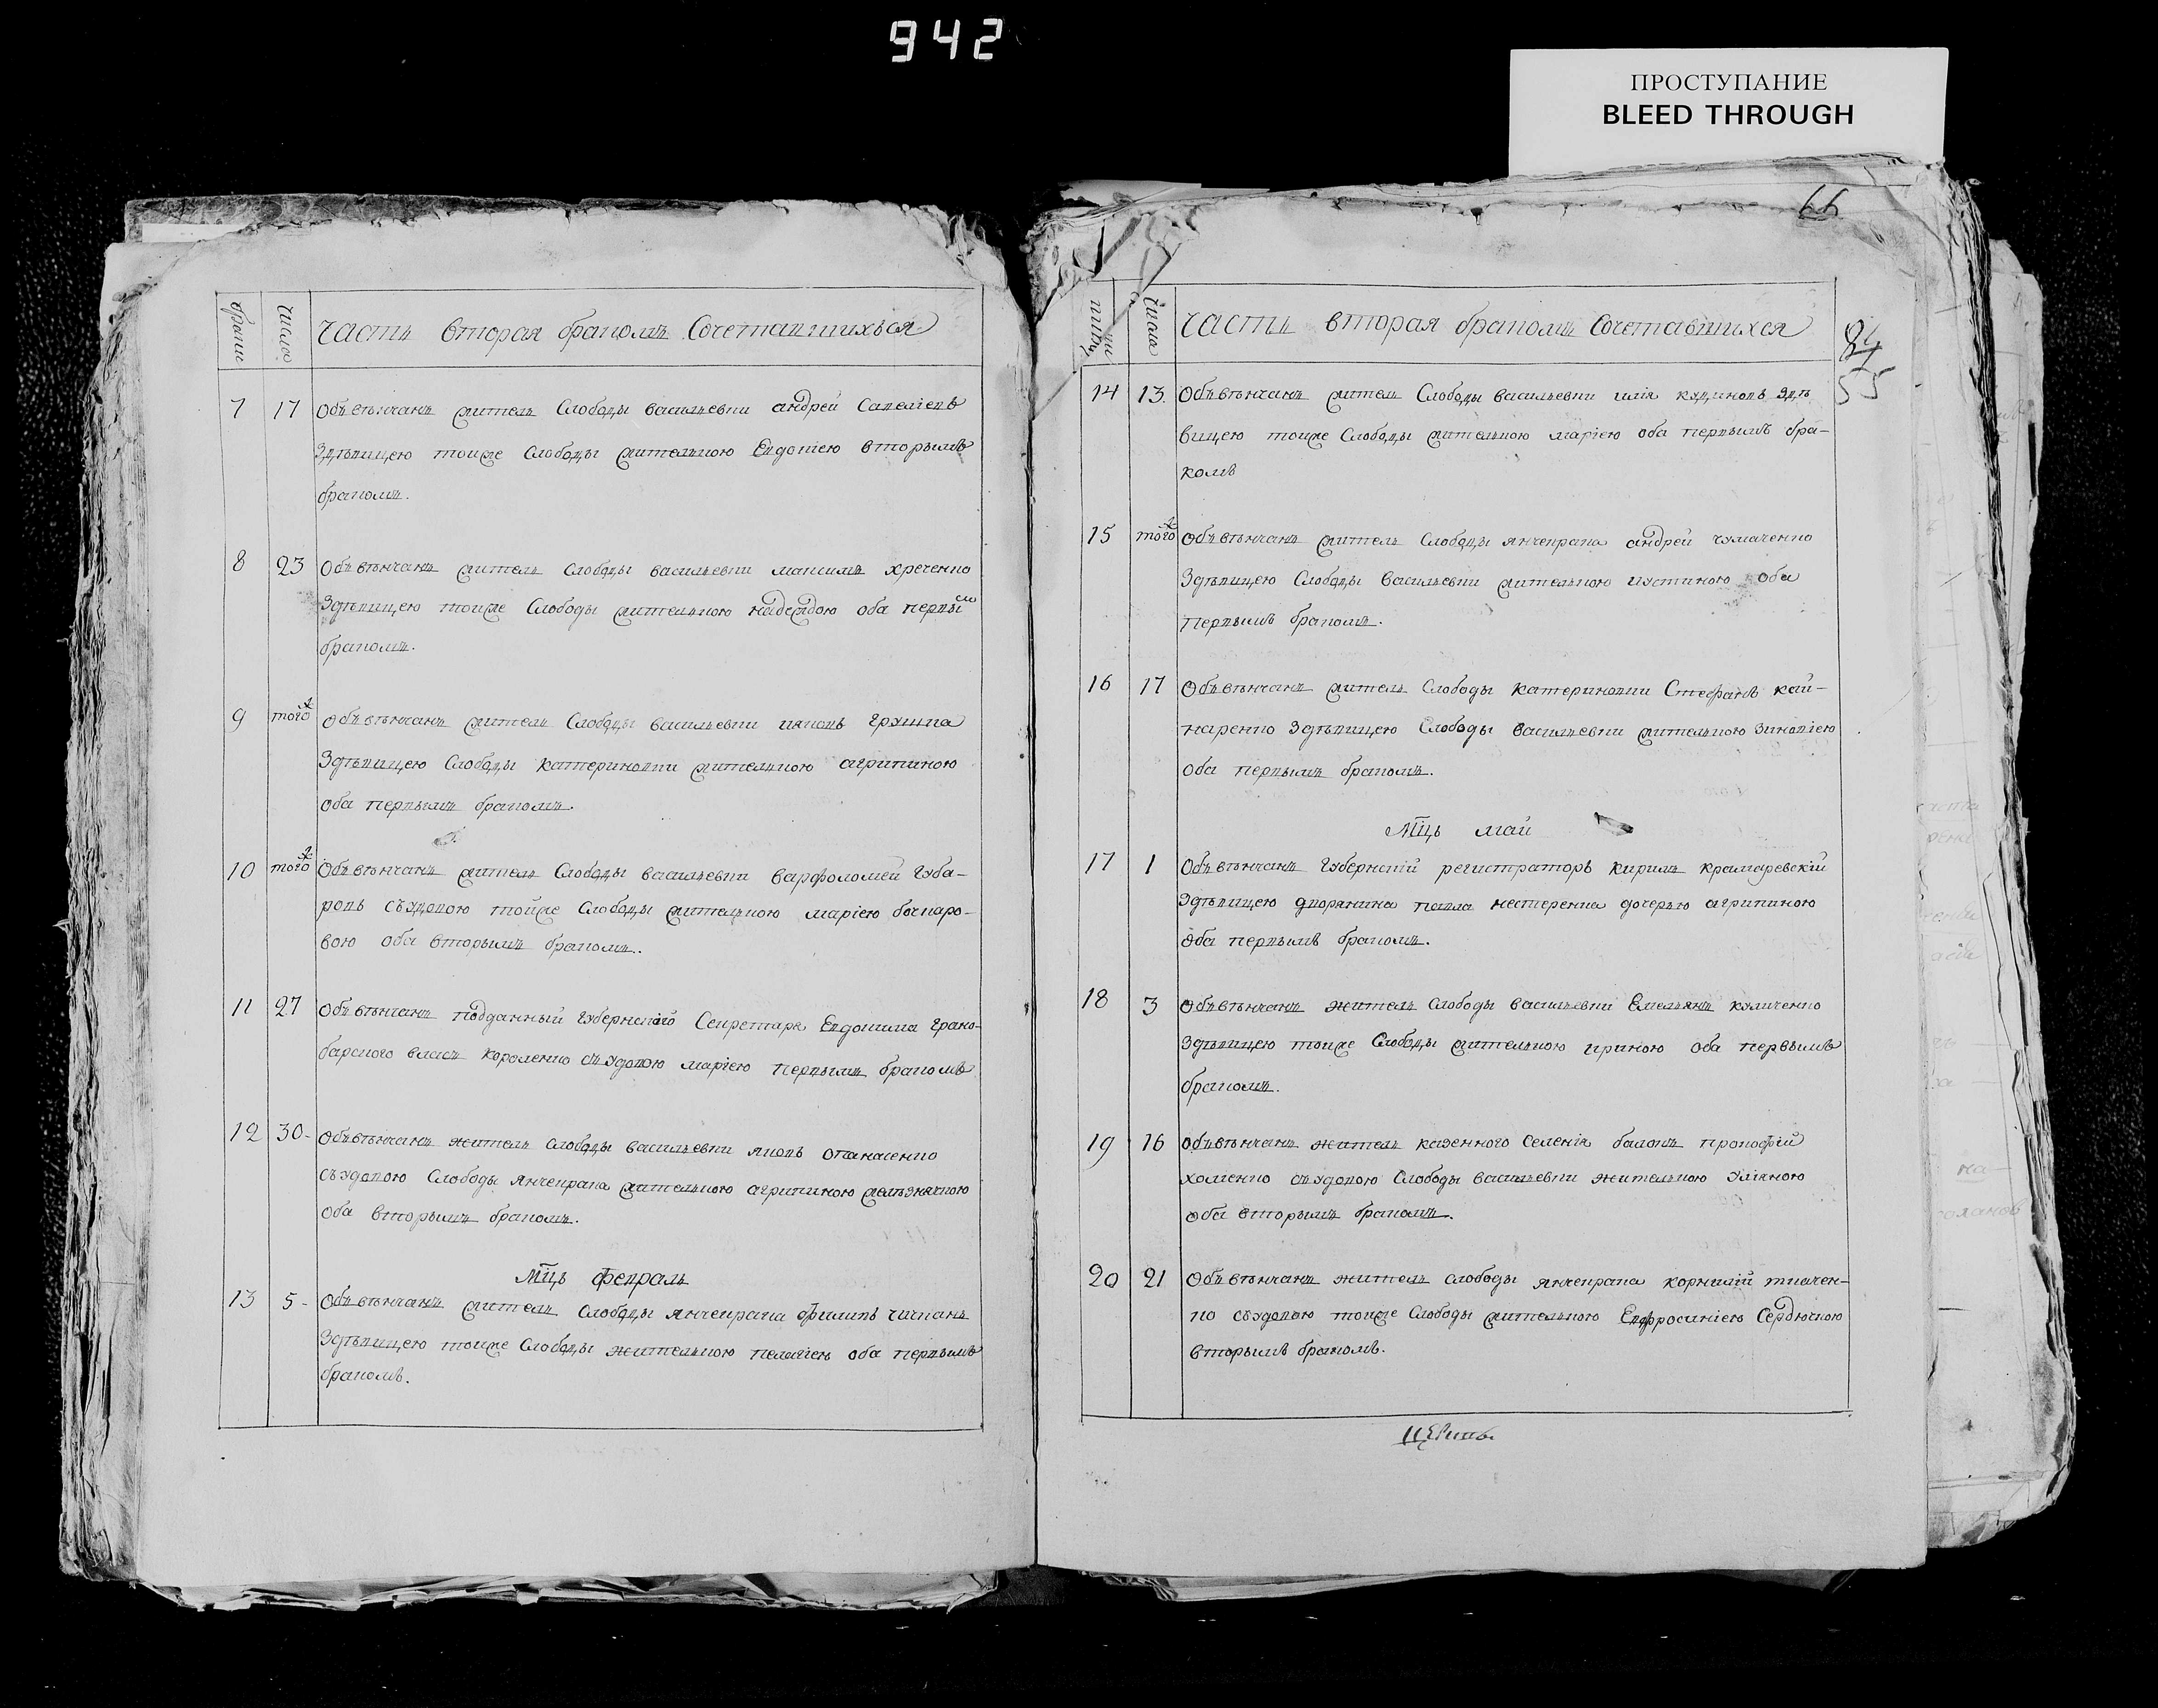 942
ПРОСТУПАНИЕ
BLEED THROUGH
66
браки
число
часть вторая бракомъ Сочетавшихься
7 17 Обвѣнчанъ житель Слободы васильевки андрей Савеліевъ
Здѣвицею тойже Слободы жителькою Евдокіею вторымъ
бракомъ.
8 23 Обвѣнчанъ житель слободы васильевки максимъ хреченко
Здѣвицею тойже Слободы жителькою надеждою оба первым
бракомъ.
9 тогож Обвѣнчанъ житель Слободы васильевки іяковъ грушка
Здѣвицею Слободы катериновки жителькою агрипиною
оба первымъ бракомъ.
10 тогож Обвѣнчанъ житель Слободы васильевки варфоломей губа-
ровъ съудовою тойже Слободы жителькою маріею бочкаро-
вою оба вторымъ бракомъ.
11 27 Обвѣнчанъ подданный губернского Секретара Евдокима грано-
барского власъ короленко съудовою маріею первымъ бракомъ
12 30 - Обвѣнчанъ житель слободы васильевки яковъ опанасенко
съудовою Слободы янчекрака жителькою агрипиною
оба вторымъ бракомъ.
Мцъ февраль
13 5 - Обвѣнчанъ житель Слободы янчекрака филипъ чигканъ
Здѣвицею тойже Слободы жителькою пелагіею оба первымъ
бракомъ.
числа
часть вторая бракомъ Сочетавшихся
84
55
14 13. Обвѣнчанъ житель Слободы васильевки илія кудиновъ здѣ
вицею тойже Слободы жителькою маріею оба первымъ бра-
комъ
15 тогож Обвѣнчанъ житель Слободы янчекрака андрей чумаченко
Здѣвицею Слободы васильевки жителькою иустиною оба
первымъ бракомъ.
16 17 Обвѣнчанъ житель Слободы катериновки Стефанъ кай-
наренко Здѣвицею Слободы васильевки жителькою зиновіею
оба первымъ бракомъ.
Мцъ май
17 1 Обвѣнчанъ губернскій регистраторъ кирилъ крамаревскій
Здѣвицею дворянина павла нестеренка дочерью агрипиною
оба первымъ бракомъ.
18 3 Обвѣнчанъ житель слободы васильевки Емельянъ куличенко
Здѣвицею тойже Слободы жителькою ириною оба первымъ
бракомъ.
19 16 Обвѣнчанъ житель казенного селенія балокъ прокофій
хоменко съудовою Слободы васильевки жителькою уліяною
оба вторымъ бракомъ.
20 21 Обвѣнчанъ житель слободы янчекрака корнилій ткачен-
ко съудовою тойже Слободы жителькою Евфросиніею Сердючкою
вторымъ бракомъ.